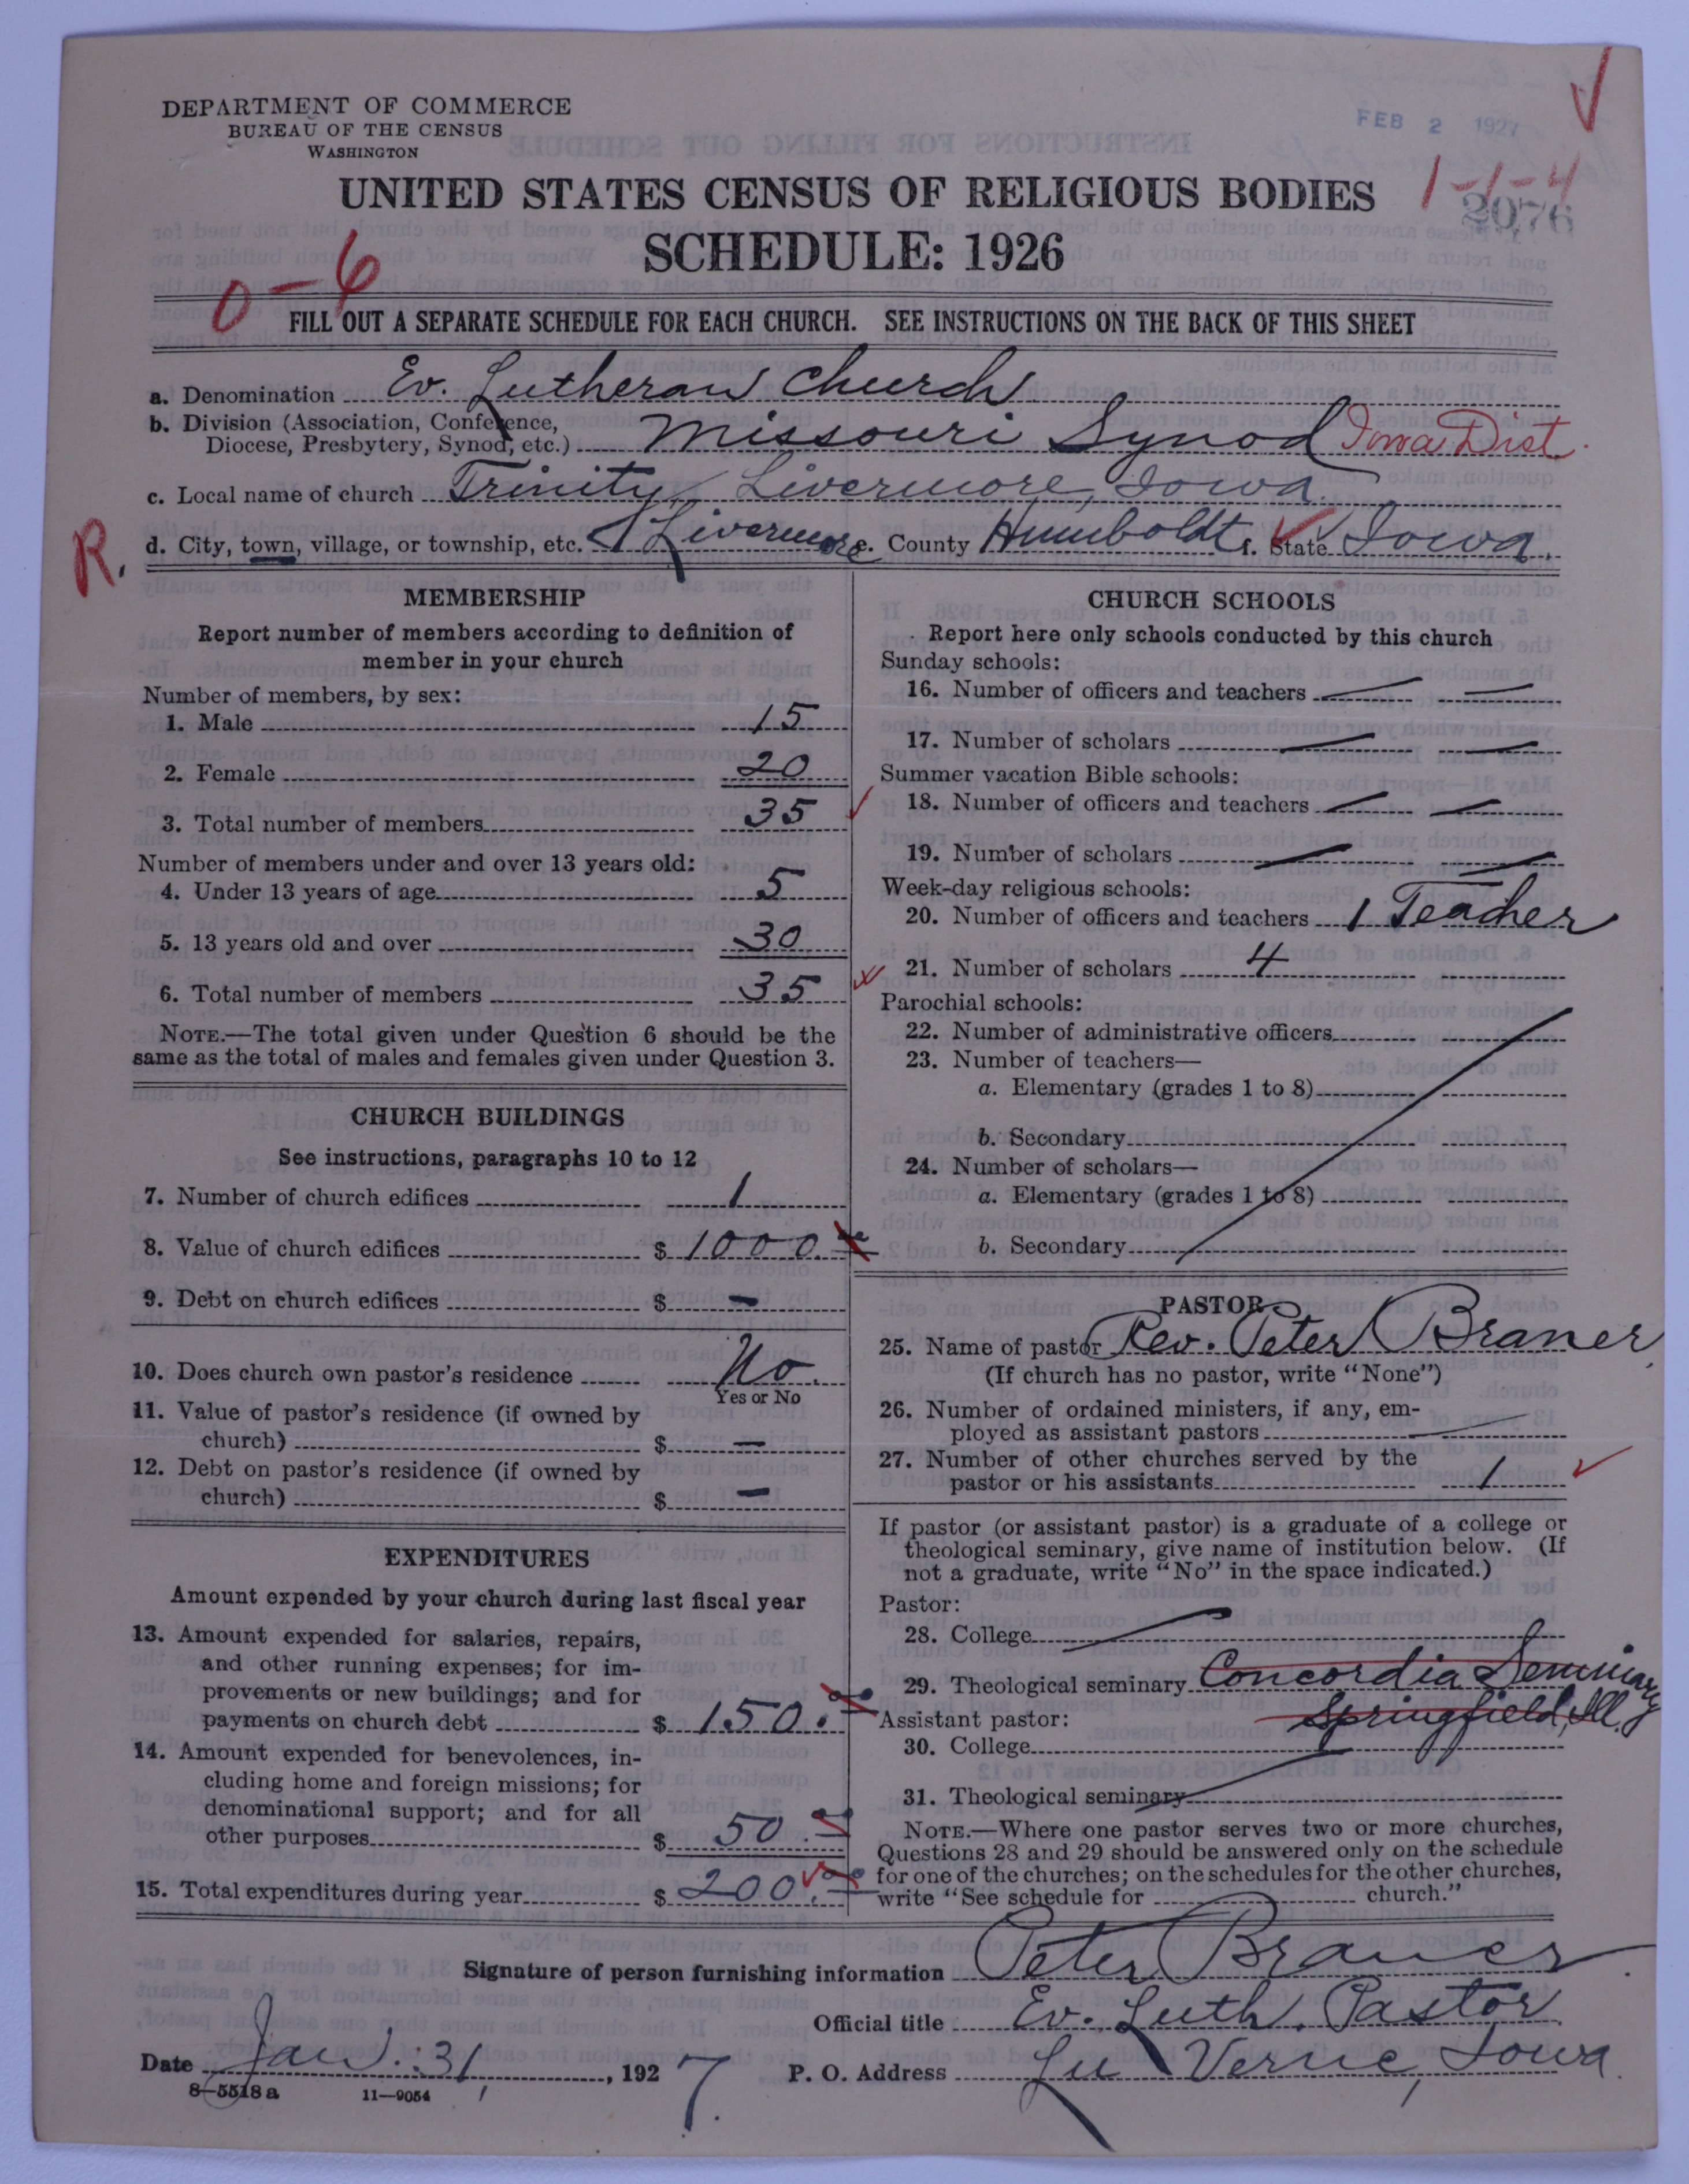 DEPARTMENT OF COMMERCE
BUREAU OF THE CENSUS
WASHINGTON
FEB 2 1927
UNITED STATES CENSUS OF RELIGIOUS BODIES
1-1-4
2076
SCHEDULE: 1926
0-6
FILL OUT A SEPARATE SCHEDULE FOR EACH CHURCH. SEE INSTRUCTIONS ON THE BACK OF THIS SHEET
a. Denomination Ev. Lutheran Church
b. Division (Association, Conference,
Diocese, Presbytery, Synod, etc.) Missouri Synod Iowa Dist.
c. Local name of church Trinity Livermore, Iowa.
R. d. City, town, village, or township, etc. Livermore e. County Humboldt f. State Iowa.
MEMBERSHIP
Report number of members according to definition of
member in your church
Number of members, by sex:
1. Male 15
2. Female 20
3. Total number of members 35
Number of members under and over 13 years old:
4. Under 13 years of age 5
5. 13 years old and over 30
6. Total number of members 35
NOTE.—The total given under Question 6 should be the
same as the total of males and females given under Question 3.
CHURCH BUILDINGS
See instructions, paragraphs 10 to 12
7. Number of church edifices 1
8. Value of church edifices $ 1000.
9. Debt on church edifices $ —
10. Does church own pastor's residence No.
Yes or No
11. Value of pastor's residence (if owned by
church) $ —
12. Debt on pastor's residence (if owned by
church) $ —
EXPENDITURES
Amount expended by your church during last fiscal year
13. Amount expended for salaries, repairs,
and other running expenses; for im-
provements or new buildings; and for
payments on church debt $ 150.
14. Amount expended for benevolences, in-
cluding home and foreign missions; for
denominational support; and for all
other purposes $ 50.
15. Total expenditures during year $ 200.
CHURCH SCHOOLS
Report here only schools conducted by this church
Sunday schools:
16. Number of officers and teachers — —
17. Number of scholars — —
Summer vacation Bible schools:
18. Number of officers and teachers — —
19. Number of scholars — —
Week-day religious schools:
20. Number of officers and teachers 1 Teacher
21. Number of scholars 4
Parochial schools:
22. Number of administrative officers
23. Number of teachers—
a. Elementary (grades 1 to 8)
b. Secondary
24. Number of scholars—
a. Elementary (grades 1 to 8)
b. Secondary
PASTOR
25. Name of pastor Rev. Peter Braner.
(If church has no pastor, write "None")
26. Number of ordained ministers, if any, em-
ployed as assistant pastors —
27. Number of other churches served by the
pastor or his assistants 1
If pastor (or assistant pastor) is a graduate of a college or
theological seminary, give name of institution below. (If
not a graduate, write "No" in the space indicated.)
Pastor:
28. College —
29. Theological seminary Concordia Seminary
Springfield, Ill.
Assistant pastor:
30. College
31. Theological seminary
NOTE.—Where one pastor serves two or more churches,
Questions 28 and 29 should be answered only on the schedule
for one of the churches; on the schedules for the other churches,
write "See schedule for church."
Signature of person furnishing information Peter Braner.
Official title Ev. Luth. Pastor.
Date Jan. 31, 1927. P. O. Address Lu Verne, Iowa.
8—5518 a 11—9054